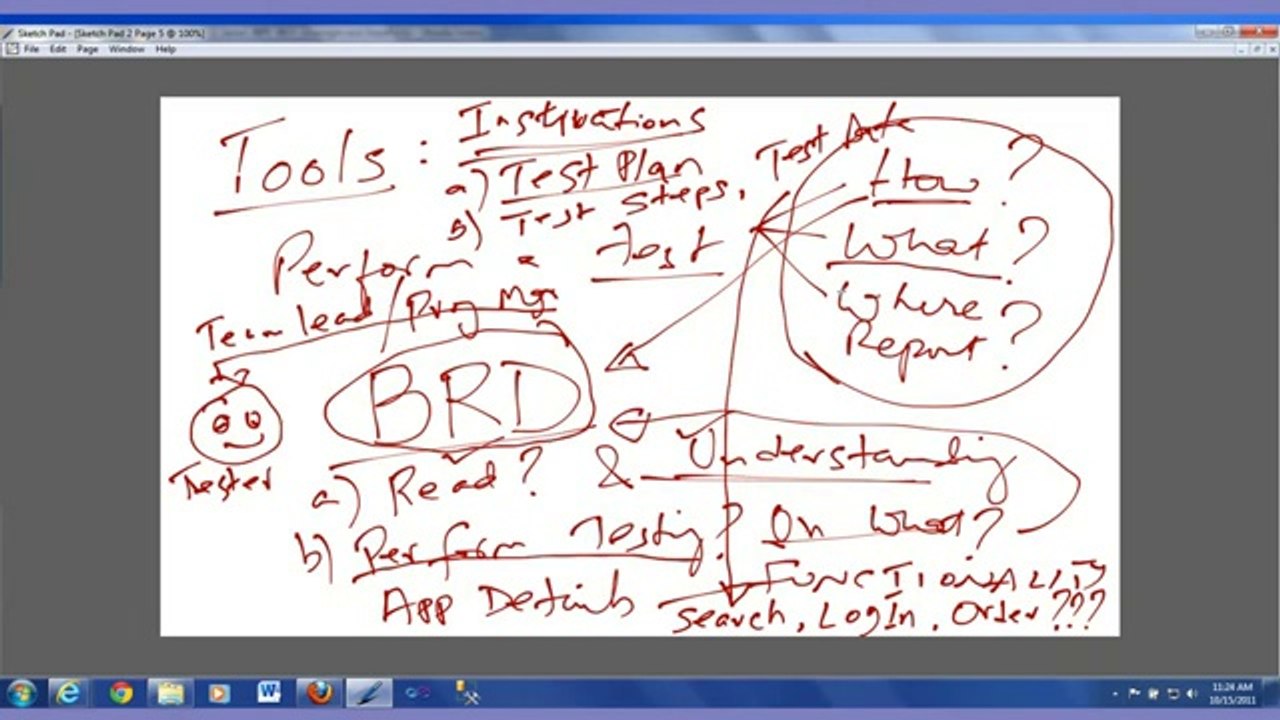 Sketch Pad - [Sketch Pad 2 Page 5 @ 100%]
File Edit Page Window Help
Tools : Instructions
a) Test Plan
b) Test Steps, Test Data
Perform a Test
How ?
What ?
Where ?
Report ?
Team lead / Proj Mgr
BRD
Tester
a) Read ? & Understanding
b) Perform Testing ? On What ?
App Details FUNCTIONALITY
Search, LogIn, Order ???
11:24 AM
10/15/2011